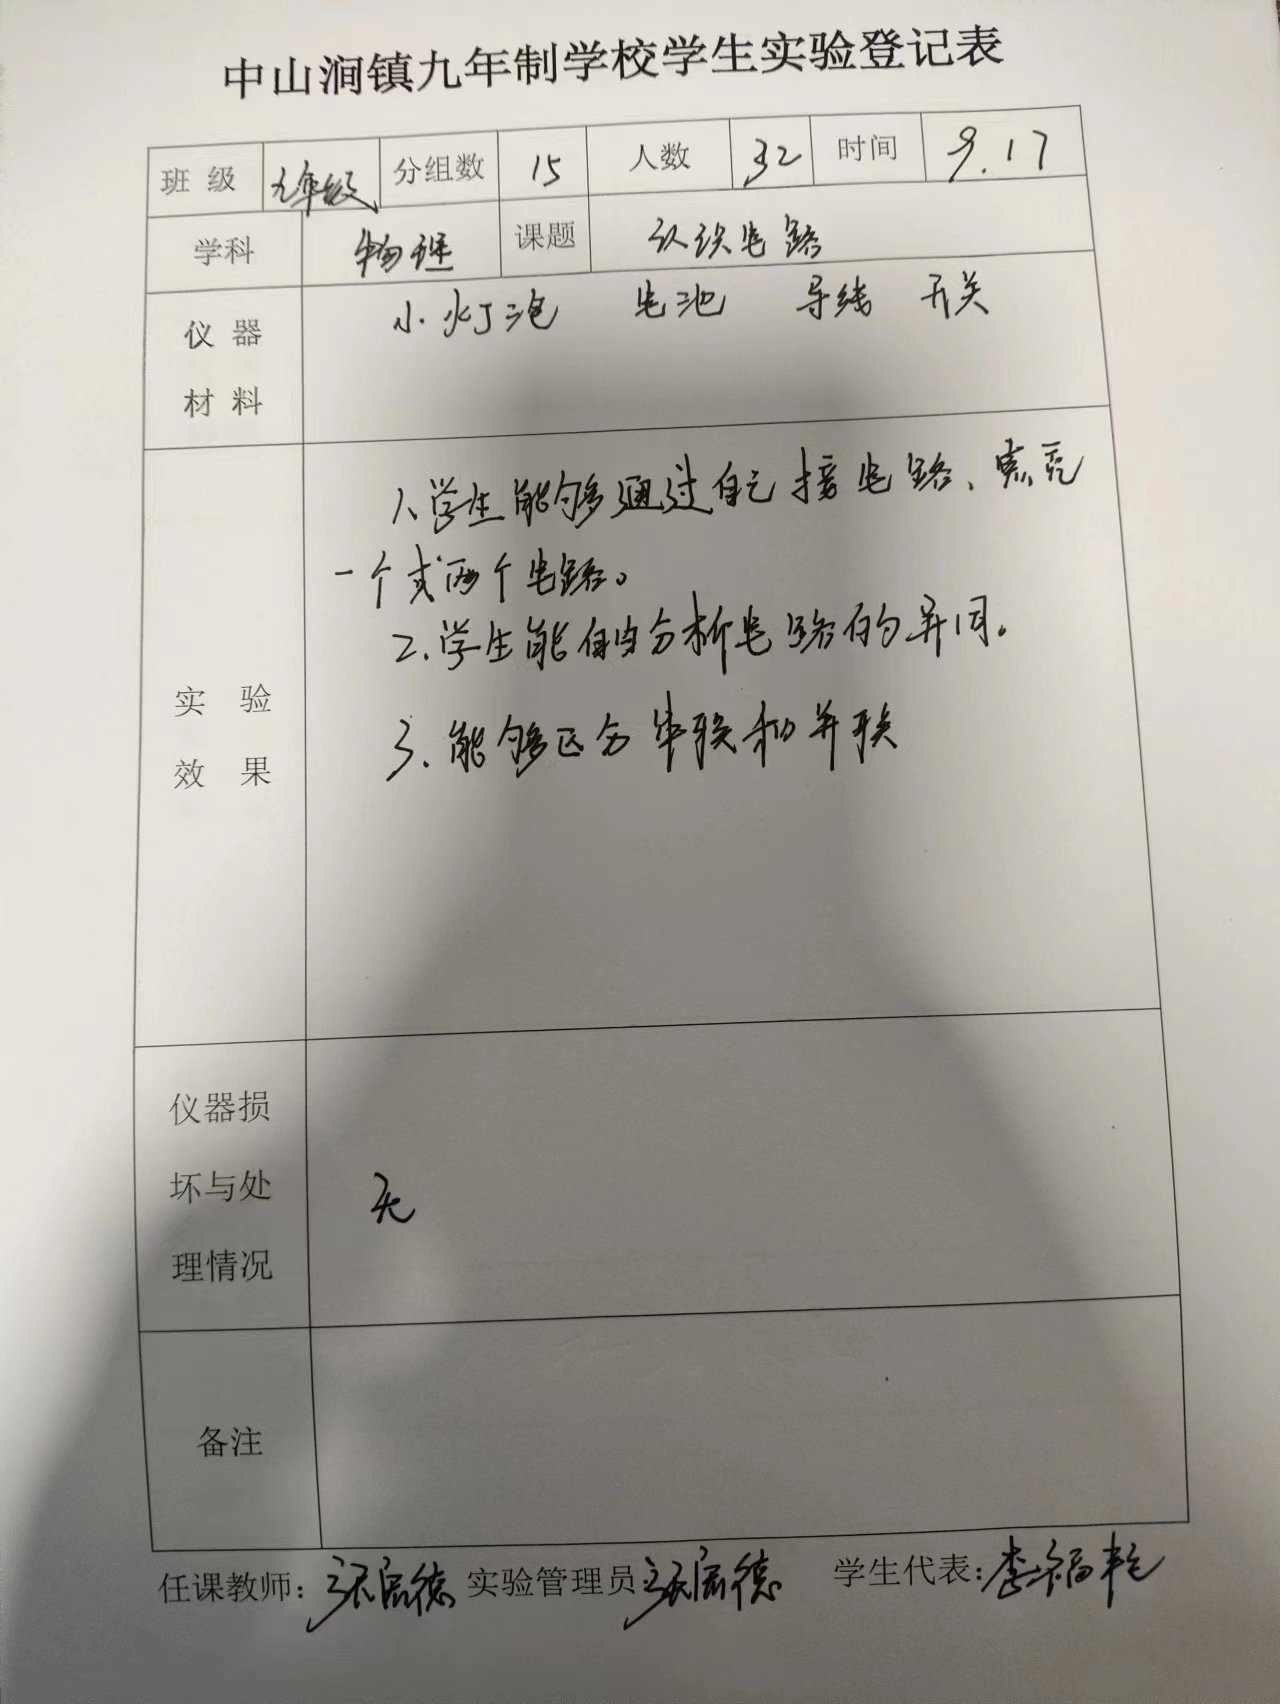 中山涧镇九年制学校学生实验登记表
班级 九年级 分组数 15 人数 32 时间 9.17
学科 物理 课题 认识电路
仪器 小灯泡 电池 导线 开关
材料
1、学生能够通过自己接电路、点亮
一个或两个电路。
2、学生能自由分析电路的异同。
实验
3、能够区分串联和并联
效果
仪器损
坏与处 无
理情况
备注
任课教师: 实验管理员 学生代表: